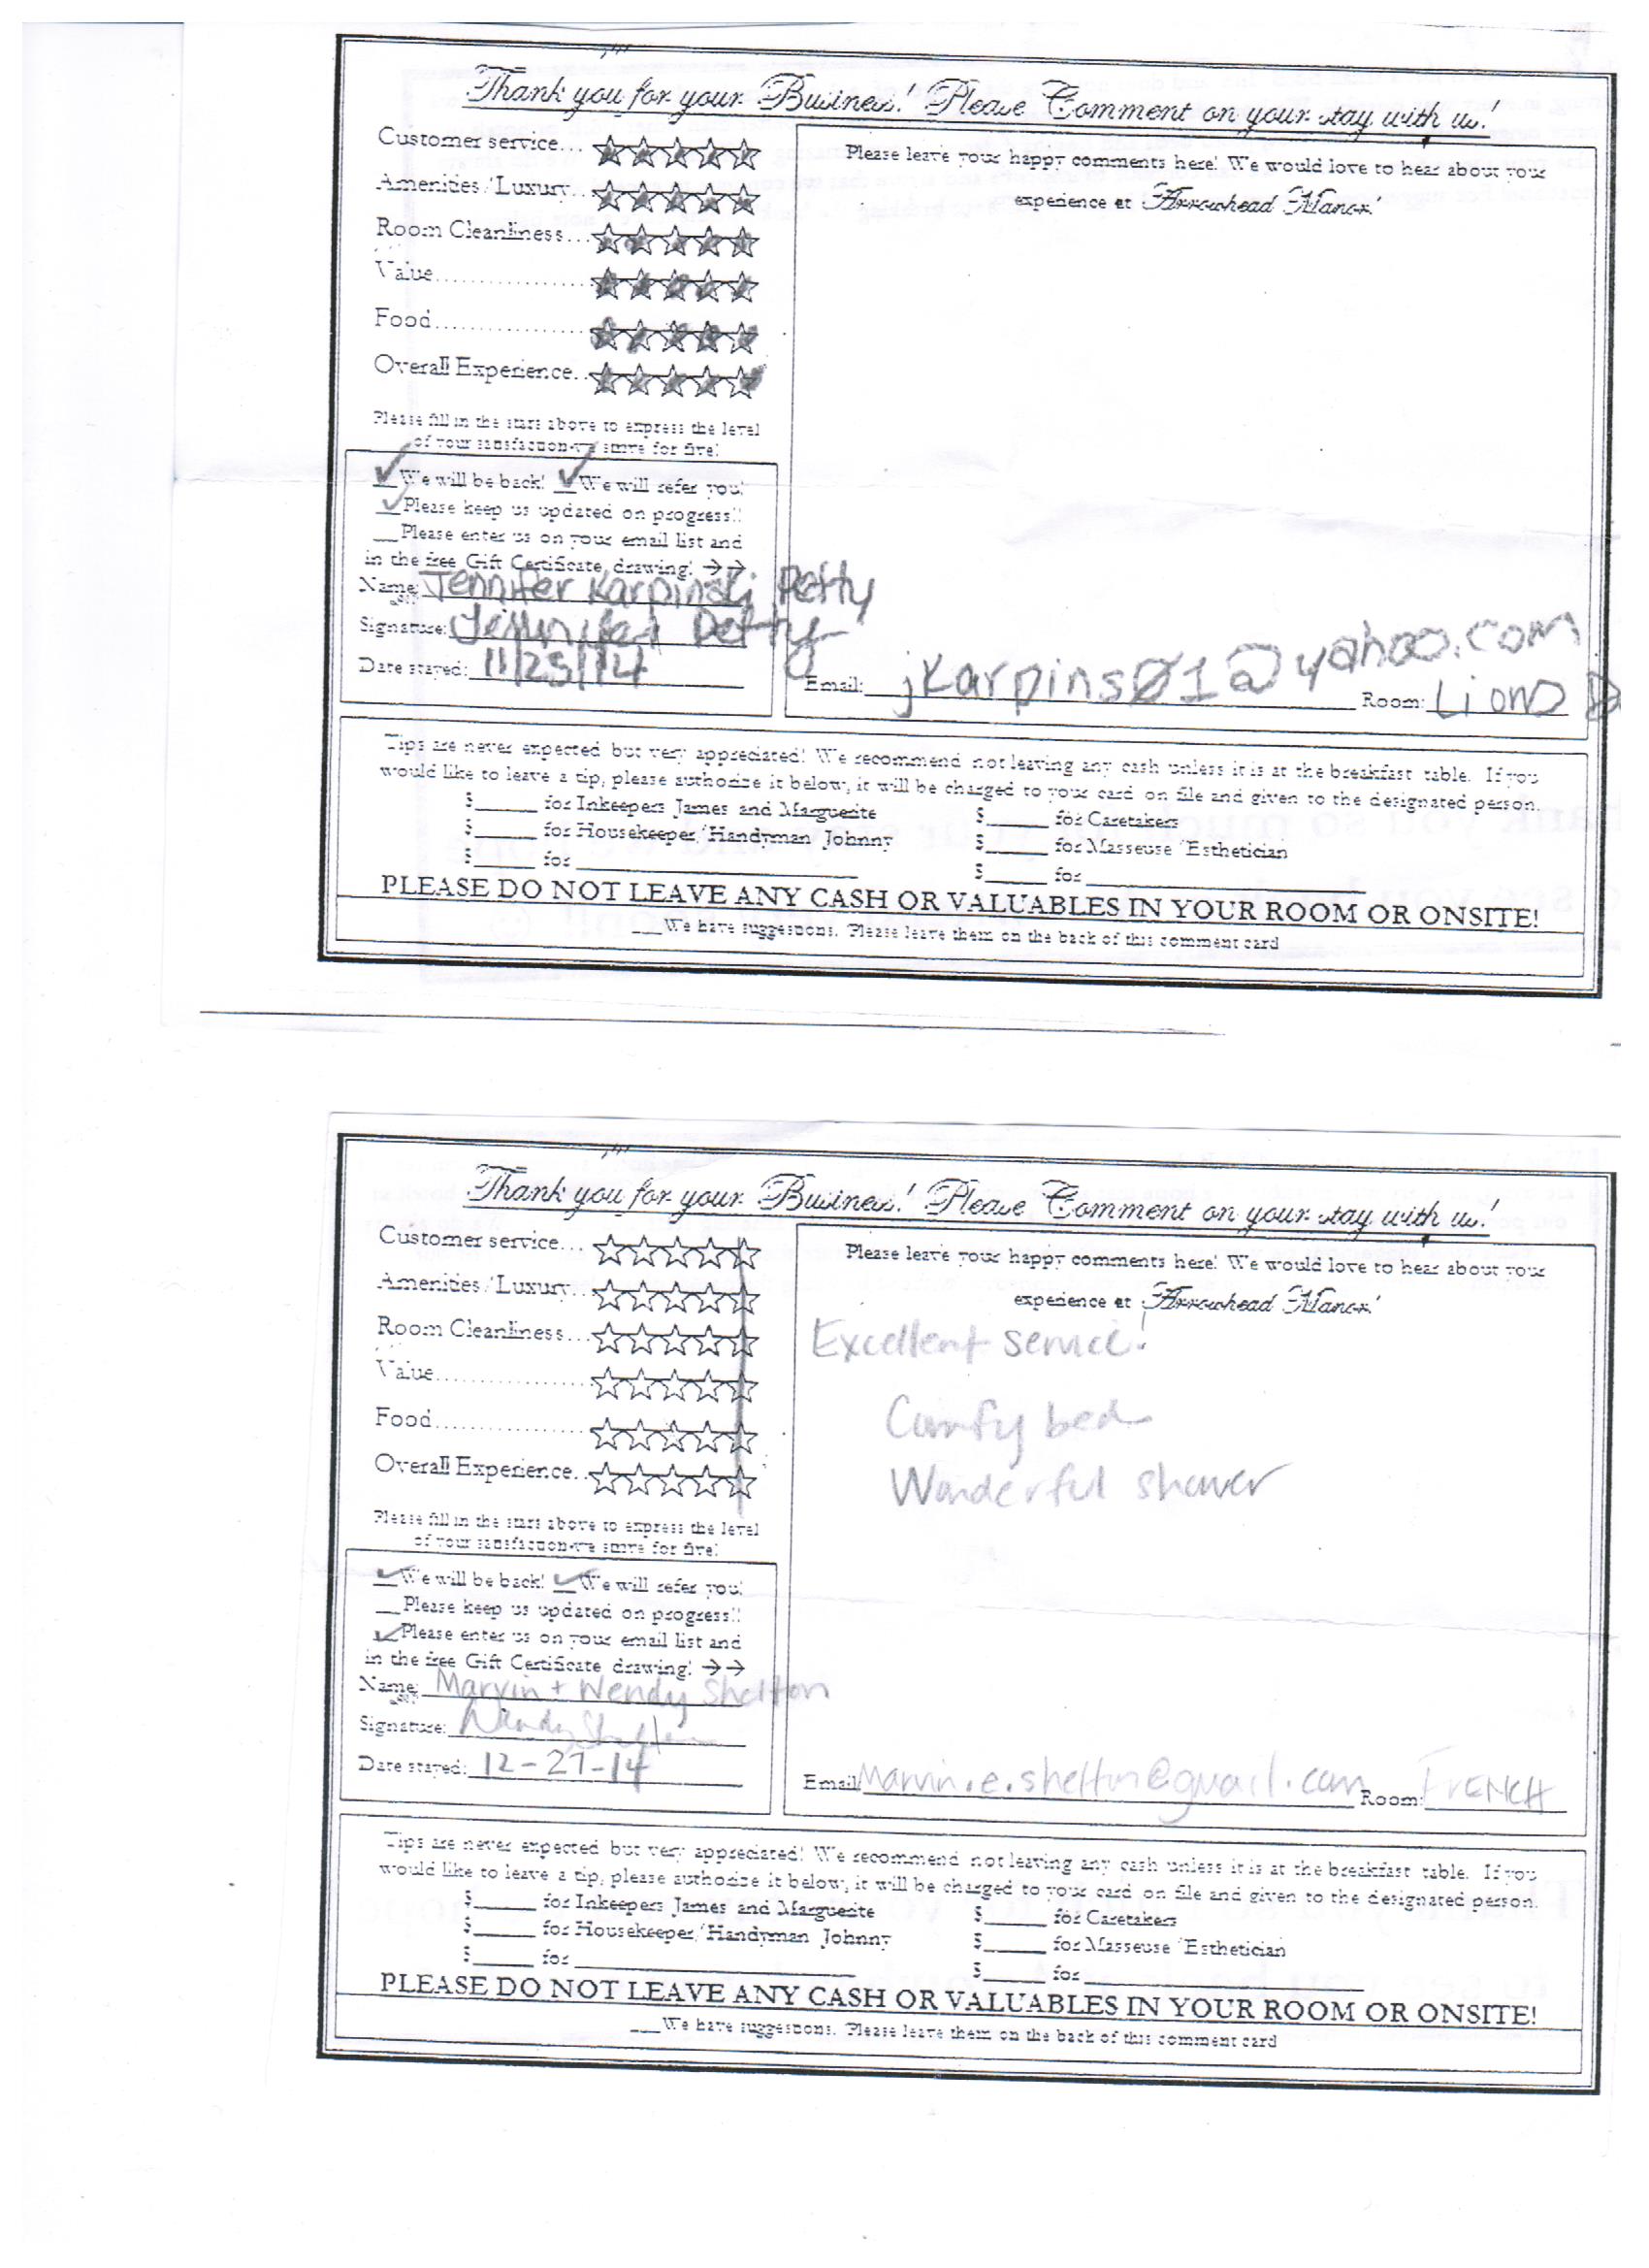 Thank you for your Business! Please Comment on your stay with us!
Customer service...
Amenities/Luxury..
Room Cleanliness...
Value....................
Food......................
Overall Experience..
Please fill in the stars above to express the level
of your satisfaction-we strive for five!
Please leave your happy comments here! We would love to hear about your
experience at Arrowhead Manor!
__We will be back! __We will refer you!
__Please keep us updated on progress!!
__Please enter us on your email list and
in the free Gift Certificate drawing! →→
Name: Jennifer Karpinski Petty
Signature: Jennifer Petty
Date stayed: 11/25/14
Email: jkarpins01@yahoo.com Room: Lions D
Tips are never expected but very appreciated! We recommend not leaving any cash unless it is at the breakfast table. If you
would like to leave a tip, please authorize it below, it will be charged to your card on file and given to the designated person.
$_____ for Inkeepers James and Marguerite
$_____ for Housekeeper/Handyman Johnny
$_____ for
$_____ for Caretakers
$_____ for Masseuse/Esthetician
$_____ for
PLEASE DO NOT LEAVE ANY CASH OR VALUABLES IN YOUR ROOM OR ONSITE!
___We have suggestions. Please leave them on the back of this comment card
Thank you for your Business! Please Comment on your stay with us!
Customer service...
Amenities/Luxury..
Room Cleanliness...
Value....................
Food......................
Overall Experience..
Please fill in the stars above to express the level
of your satisfaction-we strive for five!
Please leave your happy comments here! We would love to hear about your
experience at Arrowhead Manor!
Excellent service!
Comfy bed
Wonderful shower
__We will be back! __We will refer you!
__Please keep us updated on progress!!
__Please enter us on your email list and
in the free Gift Certificate drawing! →→
Name: Marvin + Wendy Shelton
Signature: Wendy Shelton
Date stayed: 12-27-14
Email: Marvin.e.shelton@gmail.com Room: FRENCH
Tips are never expected but very appreciated! We recommend not leaving any cash unless it is at the breakfast table. If you
would like to leave a tip, please authorize it below, it will be charged to your card on file and given to the designated person.
$_____ for Inkeepers James and Marguerite
$_____ for Housekeeper/Handyman Johnny
$_____ for
$_____ for Caretakers
$_____ for Masseuse/Esthetician
$_____ for
PLEASE DO NOT LEAVE ANY CASH OR VALUABLES IN YOUR ROOM OR ONSITE!
___We have suggestions. Please leave them on the back of this comment card